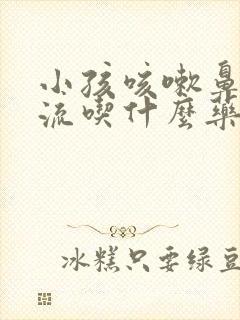 小孩咳嗽鼻
流喫什麼藥
冰糕只要绿豆